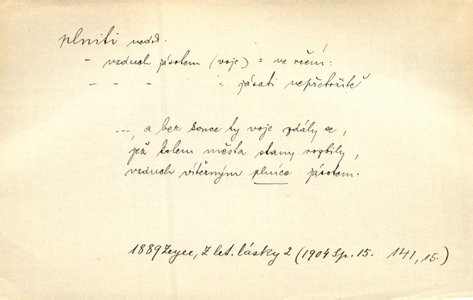 plniti nedok.
- vzduch jásotem (voje) = ve rčení:
- - - : jásati nepřetržitě
..., a bez konce ty voje zdály se,
jež kolem města stany rozbily,
vzduch vítězným plníce jásotem.
1889 Zeyer, Z let. lásky 2 (1904 Sp. 15. 141, 15.)